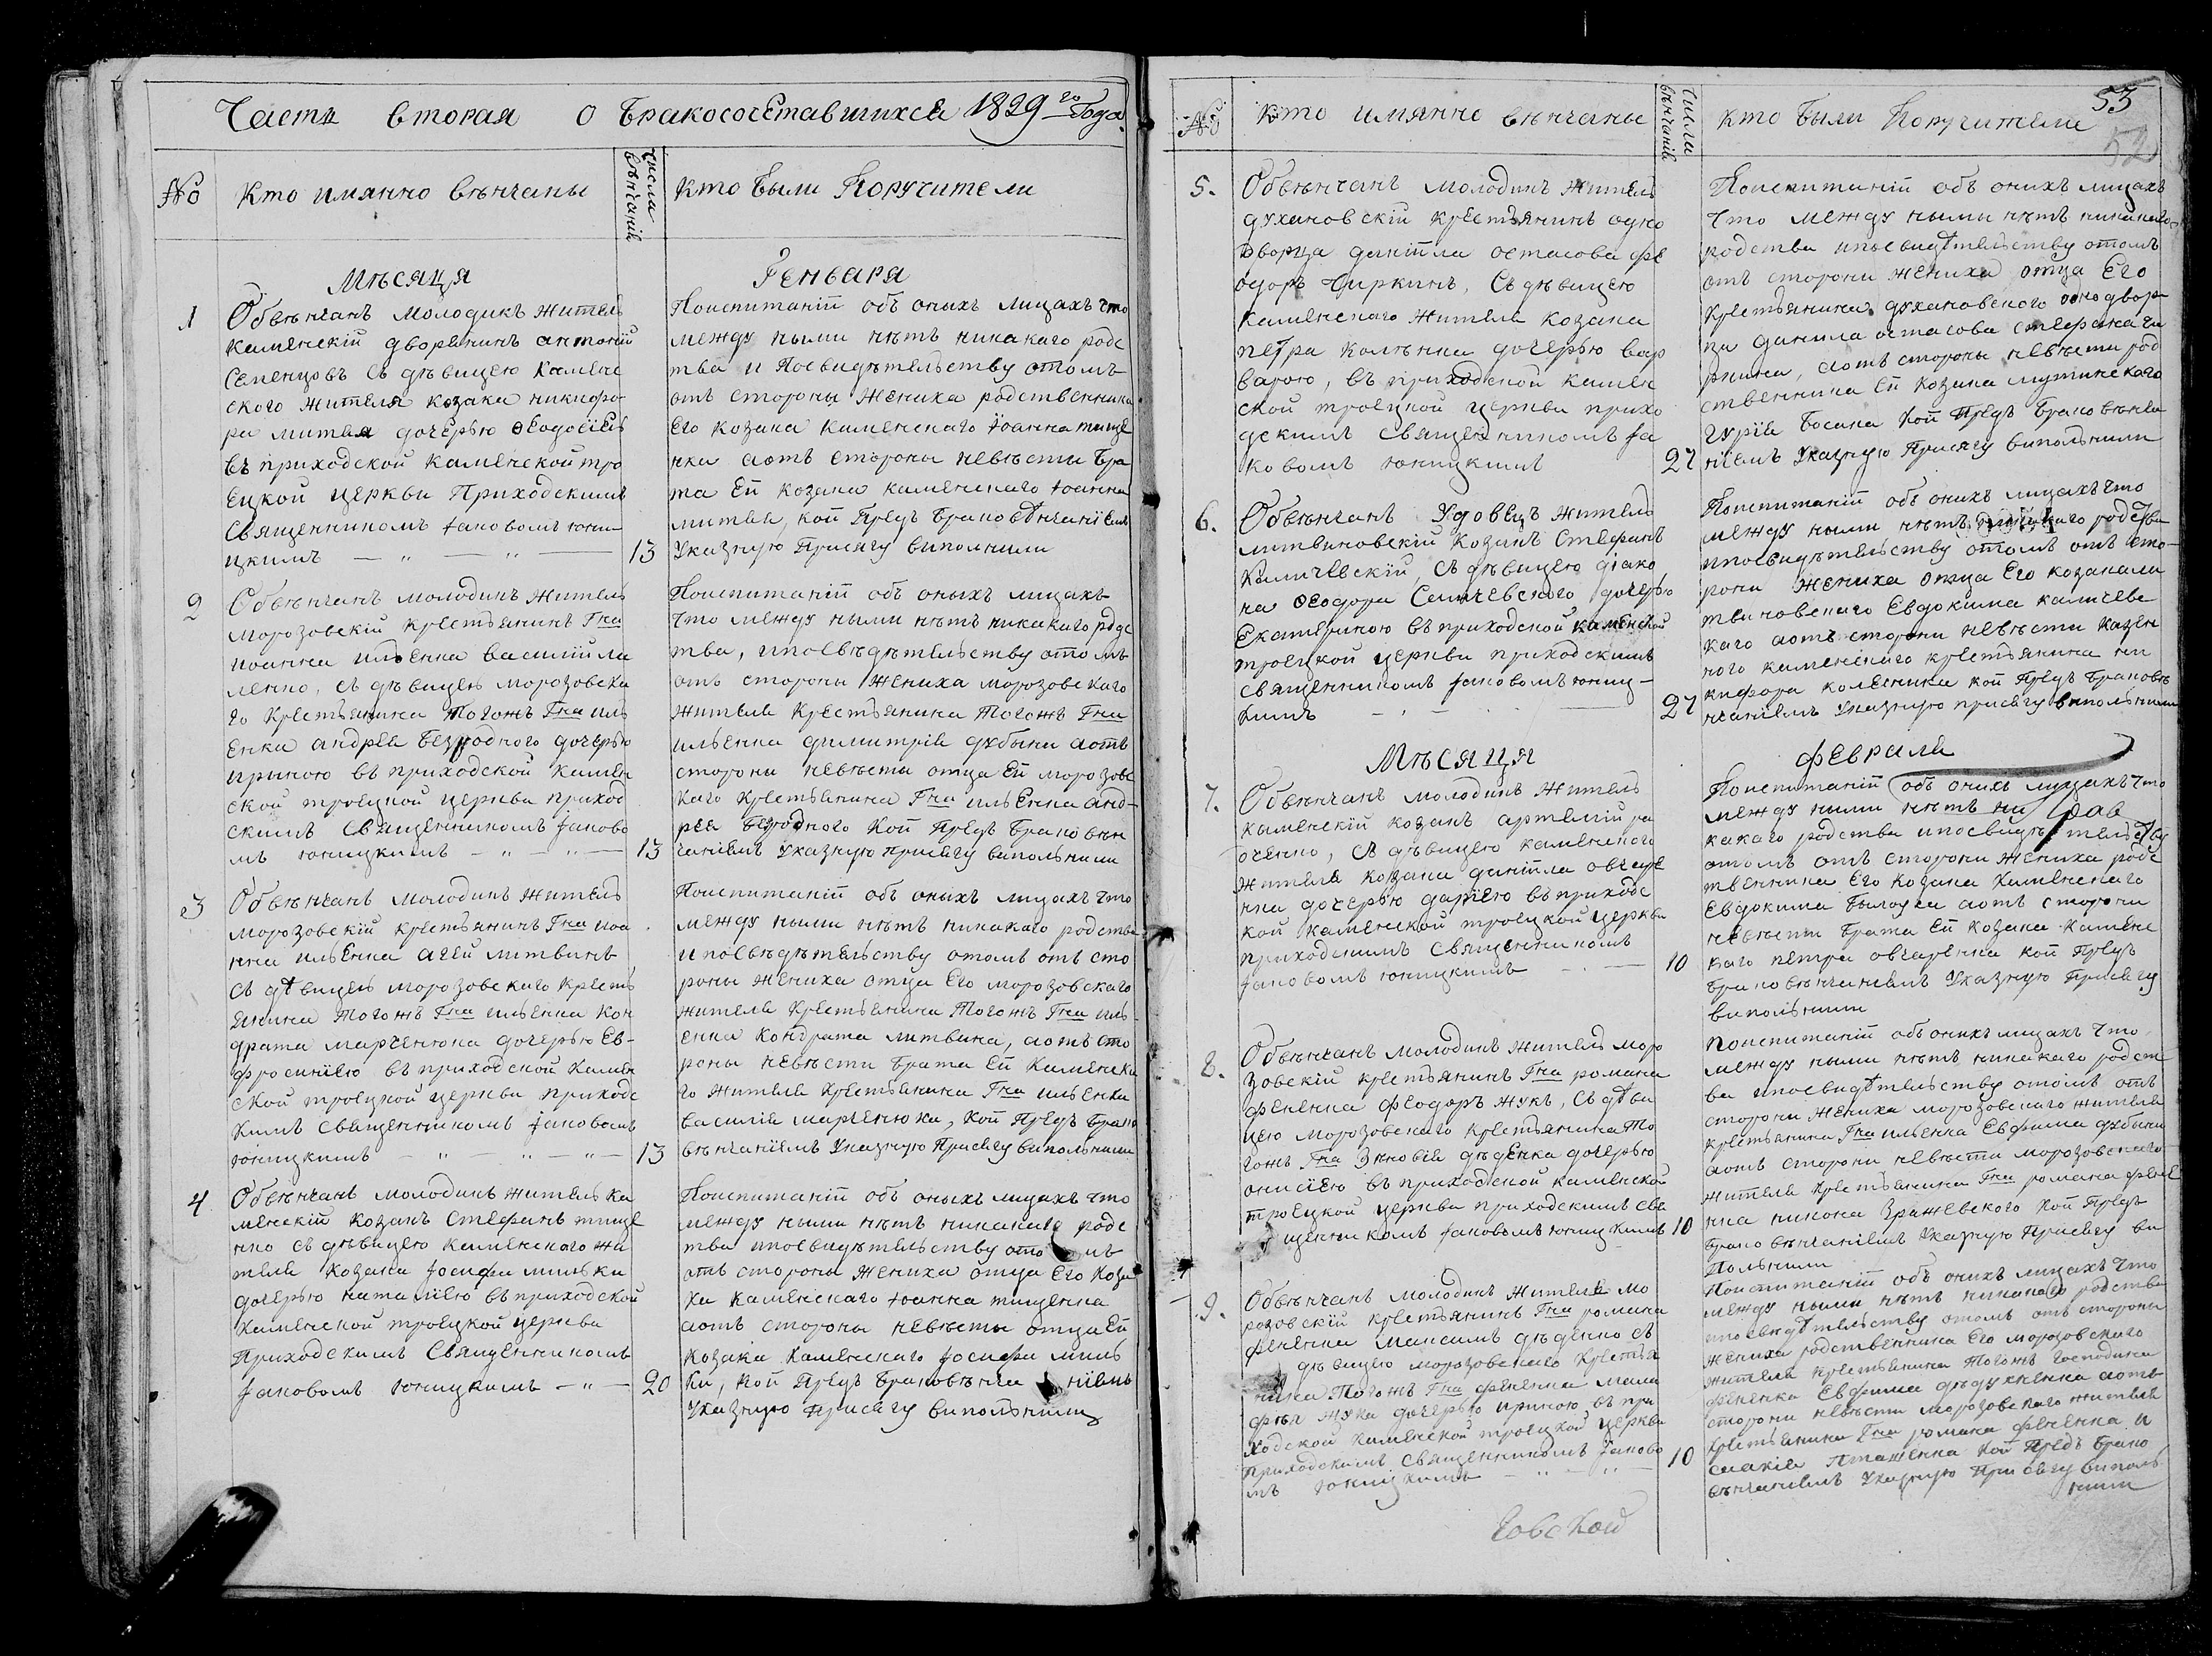 Часть вторая о бракосочетавшихся 1829го Года.
№
Кто имянно вѣнчаны
Числа вѣнчаній
Кто были Поручители
Мѣсяця
Генваря
1
Обвѣнчанъ молодикъ житель
каменскій дворянинъ антоній
Семенцовъ съ дѣвицею каменс
ского жителя козака никифо-
ра митяя дочерью Ѳеодосіею
въ приходской каменской тро
ецкой церкви Приходскимъ
Священникомъ Іаковомъ Юни-
цкимъ
13
Поиспитаніи объ оныхъ лицахъ что
между ними нѣтъ никакаго родс
тва и Посвидѣтельству отомъ
отъ стороны жениха родственника
Его козака каменскаго Іоанна тище
нка аотъ стороны невѣсти бра
та Ей козака каменскаго Іоанна
митяя, кой Предъ браковѣнчаніемъ
Указную Присягу виполнили
2
Обвѣнчанъ молодикъ житель
морозовскій крестьянинъ Гна
иоанна ильенка василій ма
ленко, съ дѣвицею морозовска
го крестьянина тогожъ Гна иль
енка андрея безродного дочерью
ириною въ приходской камен
ской троецкой церкви приход
скимъ Священникомъ Іаково
мъ Юницкимъ
13
Поиспитаніи объ оныхъ лицахъ
что между ними нѣтъ никакаго родс
тва, ипосвѣдѣтельству отомъ
отъ стороны жениха морозовскаго
жителя крестьянина тогожъ Гна
ильенка димитрія дубыни аотъ
стороны невѣсти отца Ей морозовс
каго крестьянина Гна ильенка анд-
рея безродного кой Предъ браковѣн
чаніемъ Указную присягу виполнили
3
Обвѣнчанъ молодикъ житель
морозовскій крестьянинъ Гна иоа
нна ильенка агей литвинъ
съ дѣвицею морозовскаго кресть
янина тогожъ Гна ильенка кон
драта марченюка дочерью Ев-
фросиніею въ приходской камен
ской троецкой церкви приходс
кимъ Священникомъ Іаковомъ
Юницкимъ
13
Поиспитаніи объ оныхъ лицахъ что
между ними нѣтъ никакаго родства
ипосвѣдѣтельству отомъ отъ сто
роны жениха отца Его морозовскаго
жителя крестьянина тогожъ Гна иль
енка Кондрата литвина, аотъ сто
роны невѣсти брата Ей каменска
го жителя крестьянина Гна ильенка
василія марченюка, кой Предъ брако
вѣнчаніемъ Указную Присягу виполнили
4
Обвѣнчанъ молодикъ житель ка
менскій козакъ Стефанъ тище
нко съ дѣвицею каменского жи
теля козака Іосифа миньки
дочерью наталіею въ приходской
каменской троецкой церкви
Приходскимъ Священникомъ
Іаковомъ Юницкимъ
20
Поиспитаніи объ оныхъ лицахъ что
между ними нѣтъ никакаго родс
тва ипосвидѣтельству отомъ
отъ стороны жениха отца Его коза
ка каменскаго Іоанна тищенка
аотъ стороны невѣсты отца Ей
козака каменскаго Іосифа минь
ки, кой Предъ браковѣнчаніемъ
Указную присягу виполнили
53
52
№
Кто имянно вѣнчаны
Числа вѣнчаній
Кто были Поручители
5.
Обвѣнчанъ молодикъ житель
духановскій крестьянинъ одно
дворца даніила остасова фе
одоръ Чиркинъ, Съ дѣвицею
каменскаго жителя козака
петра дочерью вар
варою, въ приходской камен
ской троецкой церкви прихо
дскимъ Священникомъ Іа
ковомъ Юницкимъ
27
Поиспитаніи объ онихъ лицахъ
что между ними нѣтъ никакаго
родства ипосвидѣтельству отомъ
отъ стороны жениха отца Его
крестьянина духановского однодвор
ца данила остасова стефана чи
ркина, аотъ стороны невѣсти род
ственника Ей козака мутинского
гурія босака кой Предъ браковѣнча
ніемъ Указную Присягу виполнили
6.
Обвѣнчанъ Удовецъ житель
литвиновскій козакъ Стефанъ
Каличевскій, съ дѣвицею діако
на Ѳеодора дочерью
Екатериною въ приходской каменской
троецкой церкви приходскимъ
священникомъ Іаковомъ Юниц-
кимъ
27
Поиспитаніи объ онихъ лицахъ что
между ними нѣтъ никакаго родства
ипосвидѣтельству отомъ отъ сто-
рони жениха отца Его козака ли
твиновскаго Евдокима каличевс
каго аотъ сторони невѣсти казен
ного каменскаго крестьянина ни
кифора колесника кой Предъ браковѣ
нчаніемъ Указную присягу виполнили
Мѣсяця
февраля
7.
Обвѣнчанъ молодикъ житель
каменскій козакъ артемій ра
оченко, съ дѣвицею каменского
жителя козака даніила овчаре
нка дочерью даріею въ приходс
кой каменской троецкой церкви
приходскимъ Священникомъ
Іаковомъ Юницкимъ
10
Поиспитаніи объ онихъ лицахъ что
между ними нѣтъ ни
какаго родства ипосвидѣтельству
отомъ отъ сторони жениха родс
твенника Его козака каменскаго
Евдокима аотъ сторони
невѣсти брата Ей козака каменс
каго петра овчаренка кой Предъ
браковѣнчаніемъ Указную Присягу
виполнили
8.
Обвѣнчанъ молодикъ житель моро
зовскій крестьянинъ Гна романа
фененка феодоръ жукъ, съ дѣви
цею морозовскаго крестьянина то
гожъ Гна Зѣновія дѣденка дочерью
онисіею въ приходской каменской
троецкой церкви приходскимъ свя
щенникомъ Іаковомъ Юницкимъ
10
поиспитаніи объ онихъ лицахъ что
между ними нѣтъ никакаго родст
ва ипосвидѣтельству отомъ отъ
сторони жениха морозовскаго жителя
крестьянина Гна ильенка Евфима дубыни
аотъ сторони невѣсти морозовскаго
жителя крестьянина Гна романа фене
нка никона Вражевского кой Предъ
браковѣнчаніемъ Указную Присягу ви
полнили
9.
Обвѣнчанъ молодикъ жителя мо
розовскій крестьянинъ Гна романа
фененка максимъ дѣденко съ
дѣвицею морозовскаго крестья
нина тогожъ Гна фененка
жука дочерью ириною въ при
ходской каменской троецкой церкви
приходскимъ Священникомъ Іаково
мъ Юницкимъ
10
Поиспитаніи объ онихъ лицахъ что
между ними нѣтъ никакаго родства
ипосвѣдѣтельству отомъ отъ сторони
жениха родственника Его морозовскаго
жителя крестьянина тогожъ Господина
фененка Евфима аотъ
сторони невѣсти морозовскаго жителя
крестьянина Гна романа фененка и
саакія кой Предъ брако
вѣнчаніемъ Указную Присягу виполь
нили